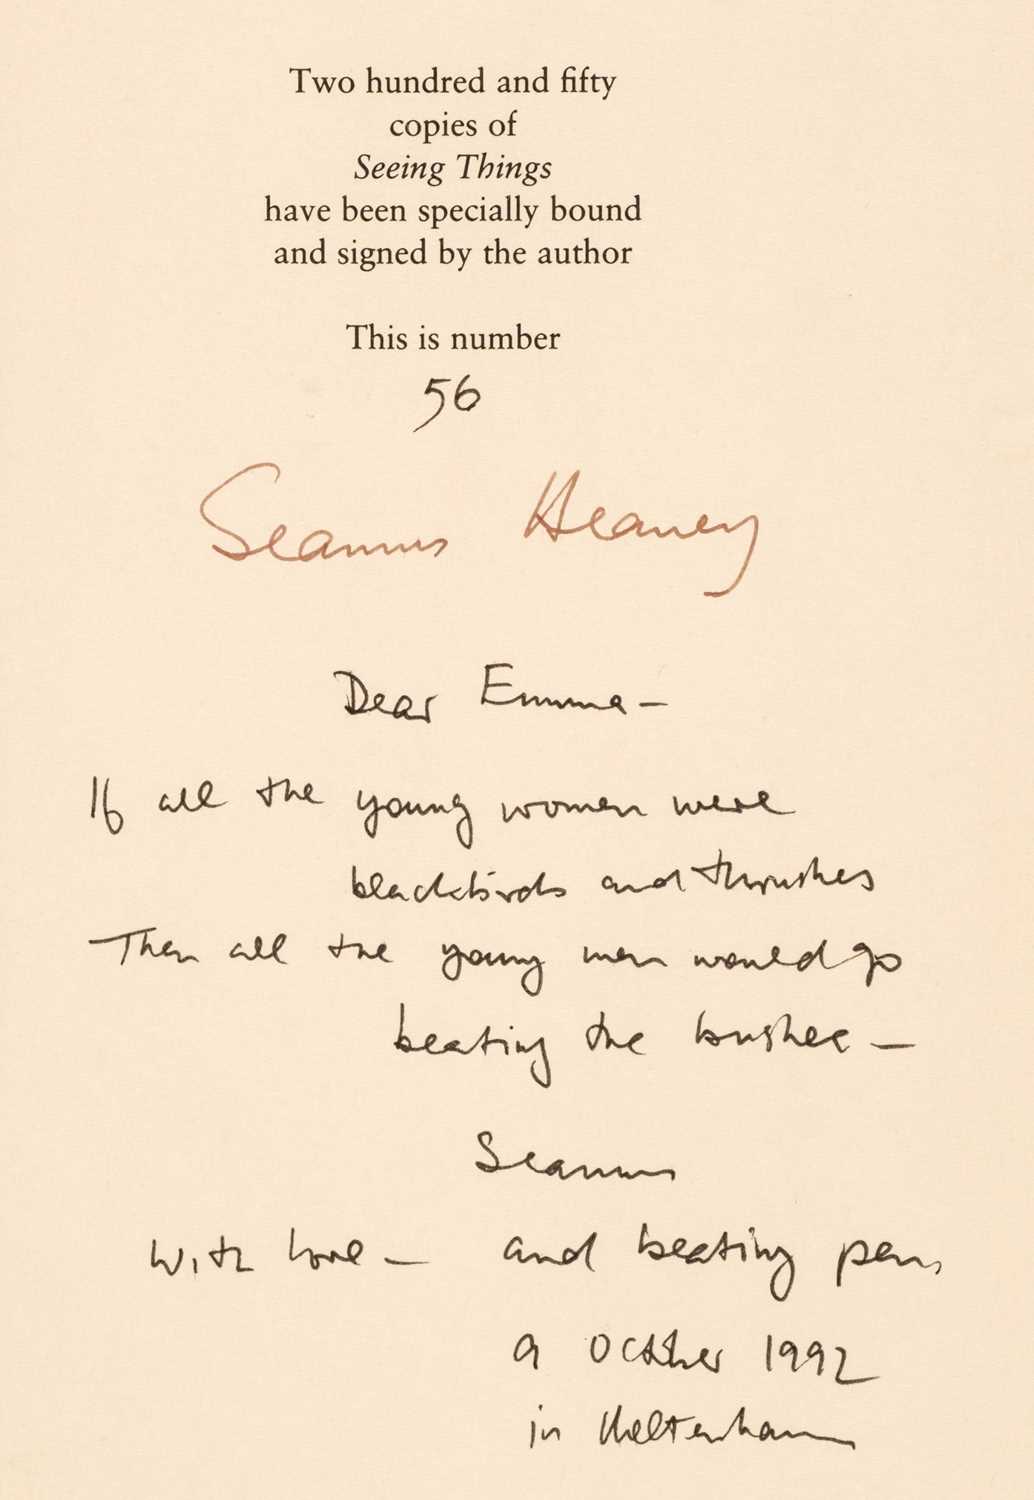 Two hundred and fifty
copies of
Seeing Things
have been specially bound
and signed by the author
This is number
56
Seamus Heaney
Dear Emma –
If all the young women were
blackbirds and thrushes
Then all the young men would go
beating the bushes –
Seamus
With love – and beating pen,
9 October 1992
in Cheltenham